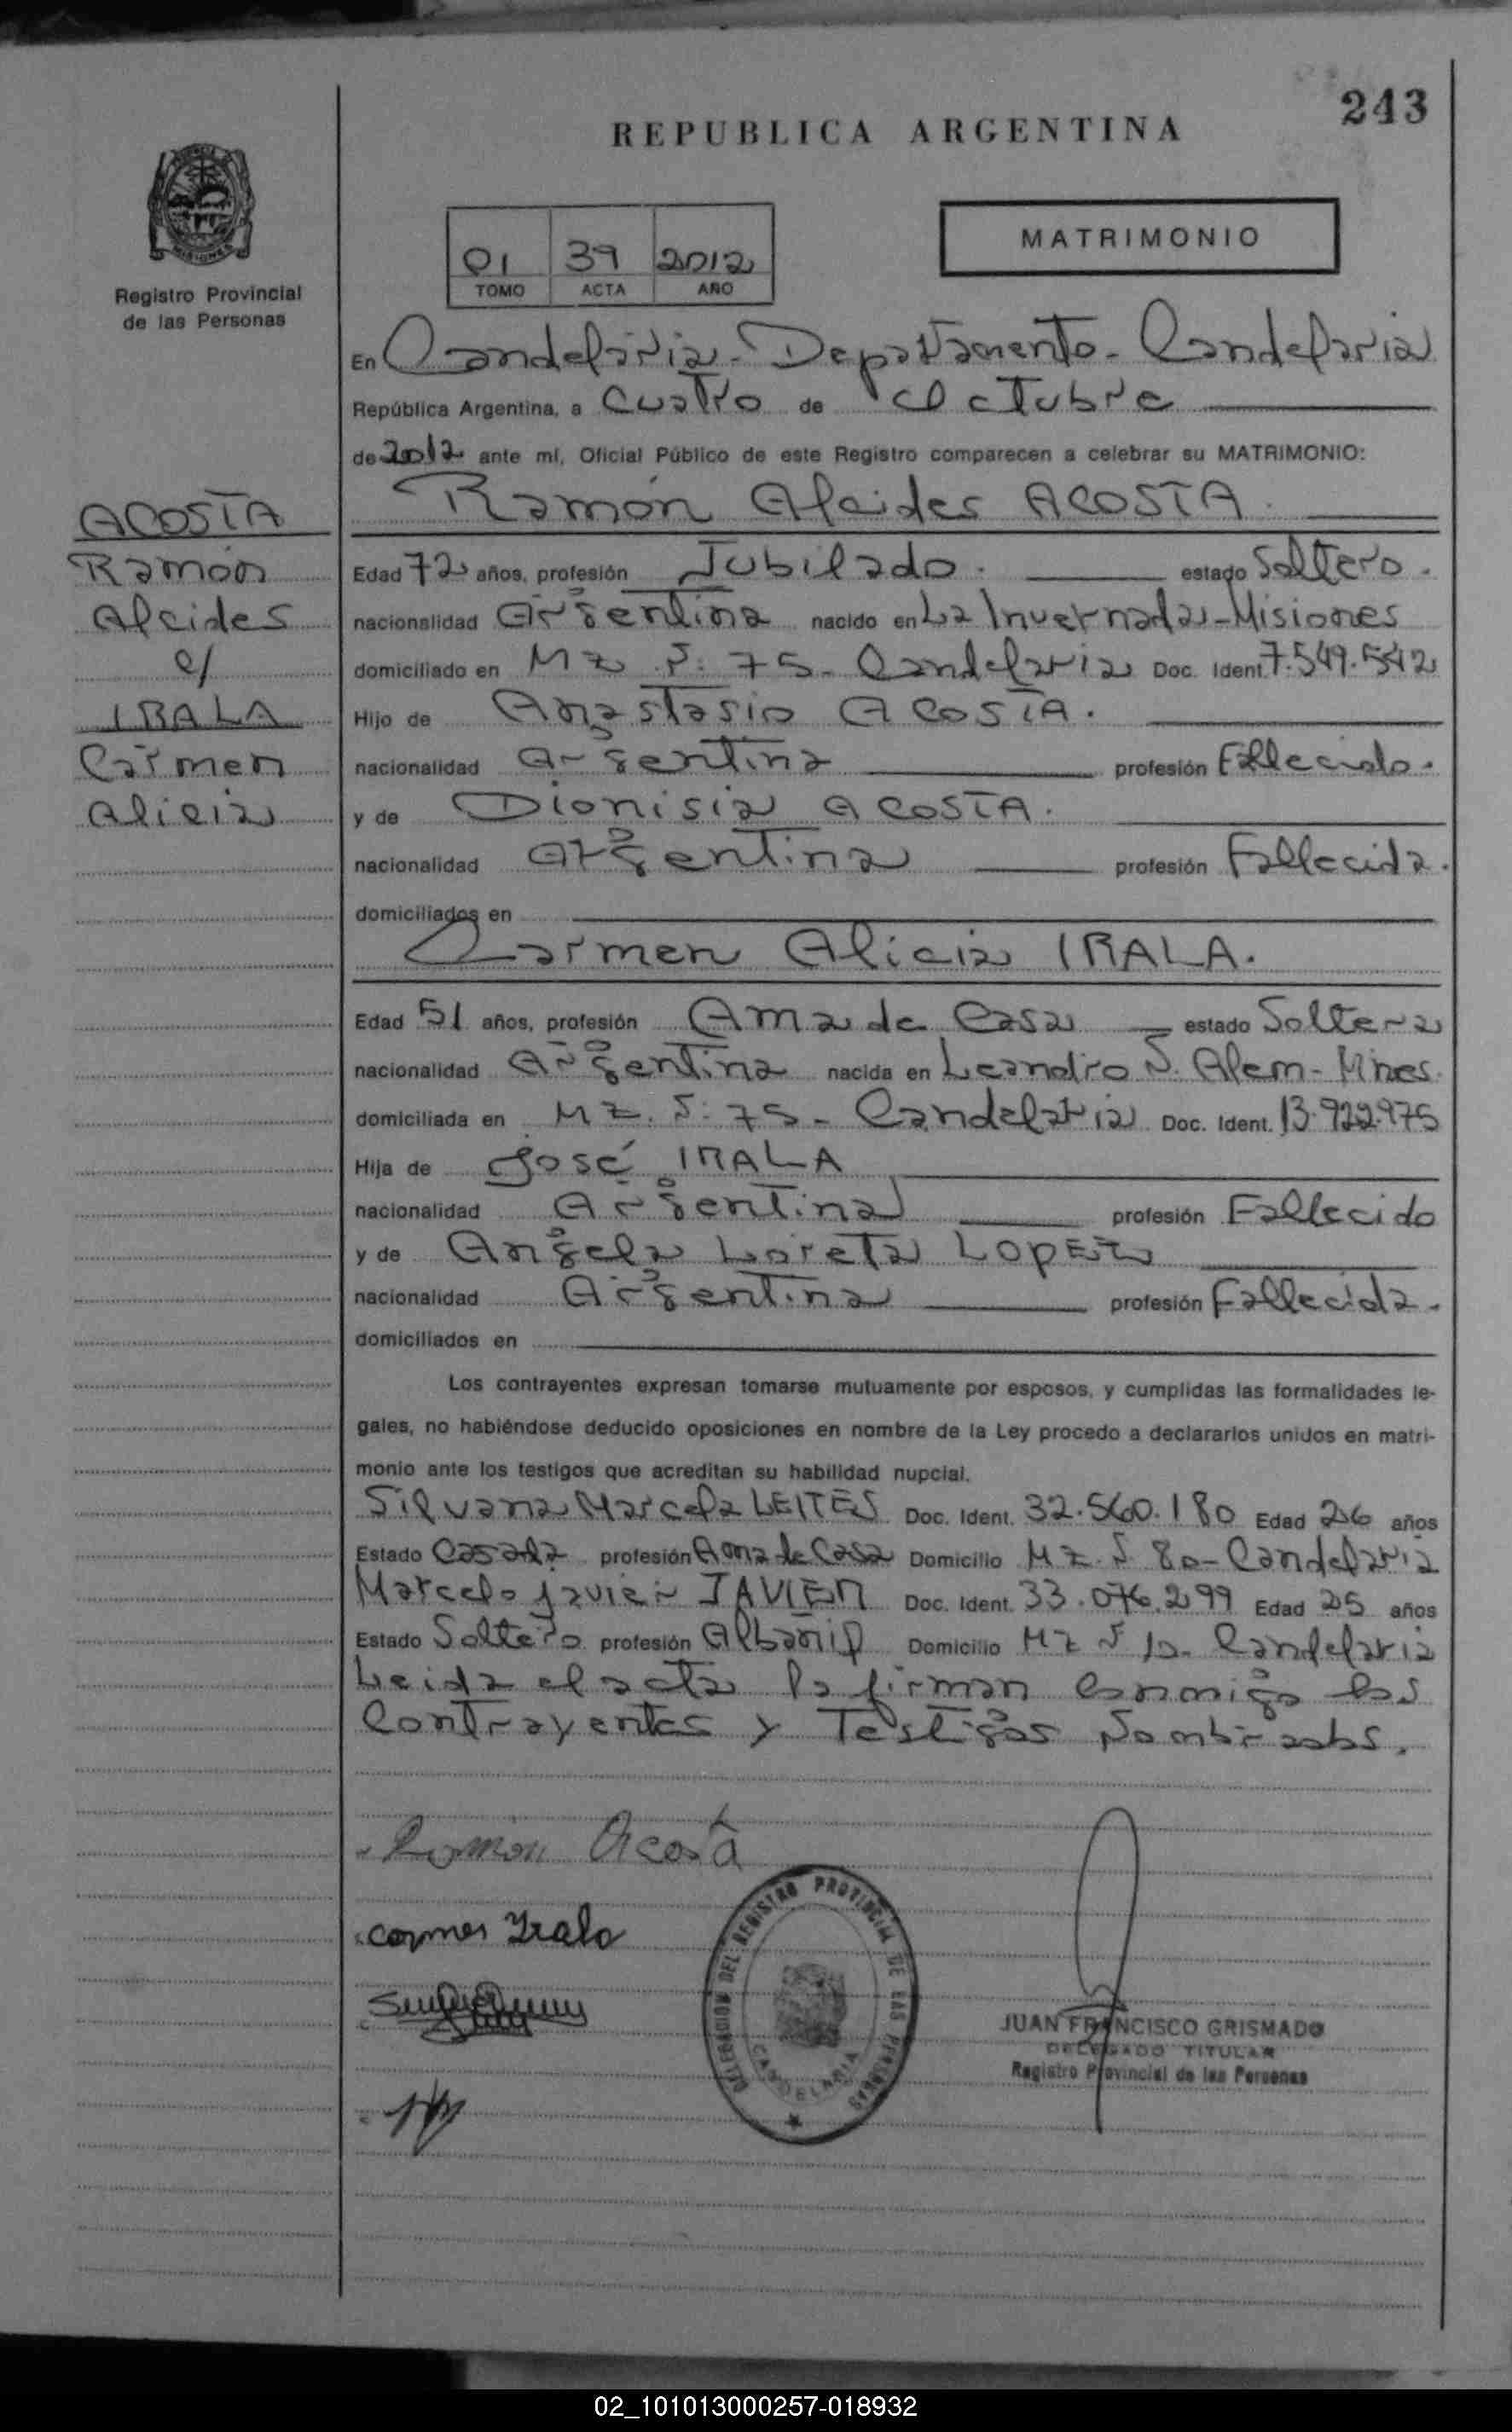 243
REPUBLICA ARGENTINA
MATRIMONIO
01 39 2012
TOMO ACTA AÑO
Registro Provincial
de las Personas
En Candelaria - Departamento - Candelaria
República Argentina, a Cuatro de Octubre
de 2012 ante mí, Oficial Público de este Registro comparecen a celebrar su MATRIMONIO:
ACOSTA
Ramón
Alcides
c/
IRALA
Carmen
Alicia
Ramón Alcides ACOSTA.
Edad 72 años, profesión Jubilado. estado Soltero.
nacionalidad Argentina nacido en La Invernada - Misiones
domiciliado en Mz S: 75 - Candelaria Doc. Ident. 7.549.542
Hijo de Anastasio ACOSTA.
nacionalidad Argentina profesión Fallecido.
y de Dionisia ACOSTA.
nacionalidad Argentina profesión Fallecida.
domiciliados en
Carmen Alicia IRALA.
Edad 51 años, profesión Ama de Casa estado Soltera
nacionalidad Argentina nacida en Leandro N. Alem - Mnes.
domiciliada en Mz. S: 75 - Candelaria Doc. Ident. 13.922.975
Hija de José IRALA
nacionalidad Argentina profesión Fallecido
y de Angela Loreta LOPEZ
nacionalidad Argentina profesión Fallecida.
domiciliados en
Los contrayentes expresan tomarse mutuamente por esposos, y cumplidas las formalidades le-
gales, no habiéndose deducido oposiciones en nombre de la Ley procedo a declararlos unidos en matri-
monio ante los testigos que acreditan su habilidad nupcial.
Silvana Marcela LEITES Doc. Ident. 32.560.180 Edad 26 años
Estado Casada profesión Ama de Casa Domicilio Mz. S 80 - Candelaria
Marcelo Javier JAVIER Doc. Ident. 33.076.299 Edad 25 años
Estado Soltero profesión Albañil Domicilio Mz S Candelaria
Leida el acta la firman conmigo los
Contrayentes y Testigos Nombrados.
Ramón Acosta
Carmen Irala
DELEGACION DEL REGISTRO PROVINCIAL DE LAS PERSONAS
CANDELARIA
JUAN FRANCISCO GRISMADO
DELEGADO TITULAR
Registro Provincial de las Personas
02_101013000257-018932